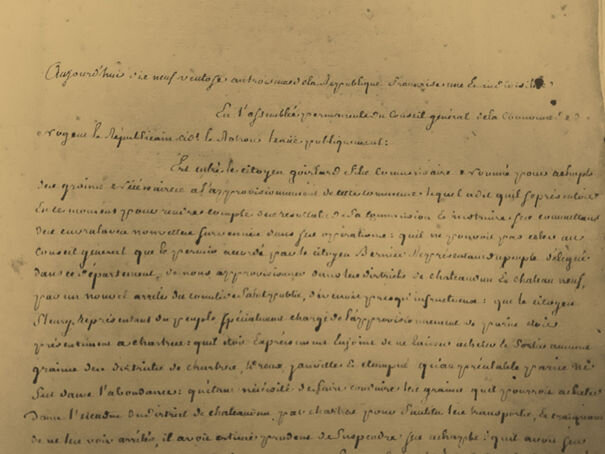 Aujourd'hui dix neuf ventose an troisieme de la République française une et indivisible
En l'assemblée permanente du Conseil général de la Commune de
Nogent le Républicain cidt le Rotrou tenüe publiquement:
Est entré le citoyen goislard fils Commissaire nommé pour achepter
des grains nécessaires a l'approvisionnement de cette commune lequel a dit qu'il se présentoit
en ce moment pour rendre compte du résultat de sa commission et instruire ses committans
des entraves nouvelles survenües dans ses opérations: qu'il ne pouvoit pas celer au
Conseil général que le permis accordé par le citoyen Bernier Représentant du peuple délégué
dans ce département, de nous approvisionner dans les districts de chateaudun et chateau neuf,
par un nouvel arrêté du comité de Salut public, devenoit presqu'infructueux: que le citoyen
fleury, Représentant du peuple spécialement chargé de l'approvisionnement de paris étoit
présentement a chartres: qu'il étoit expressément enjoint de ne laisser acheter et sortir aucuns
grains des districts de chartres, dreux, janville et étampes qu'au préalable paris ne
fut dans l'abondance: qu'étant nécessité de faire conduire les grains qu'il pourroit acheter
dans l'étendüe du district de chateaudun, par chartres pour faciliter les transports, et craignant
de ne les voir arrêtés, il avoit estimé prudent de suspendre ses achapts: qu'il avoit fait